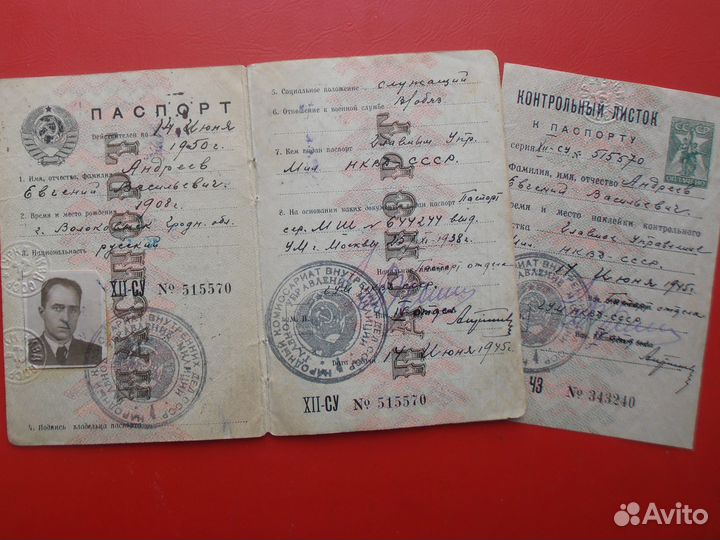 ПАСПОРТ
Действителен по 14 Июня
1950 г.
Андреев
1. Имя, отчество, фамилия
Евгений Васильевич.
1908 г.
2. Время и место рождения
г. Волоковск Гродн. обл.
3. Национальность русский
XII-СУ № 515570
4. Подпись владельца паспорта
ПАСПОРТ
5. Социальное положение служащий
6. Отношение к военной службе
В/обяз.
7. Кем выдан паспорт Главным Упр.
Мил НКВД СССР.
8. На основании каких документов выдан паспорт Паспорт
сер. МШ № 644244 выд.
г. Москвы 1938 г.
Начальник паспорт. отдела
ГУМ НКВД СССР
М. П.
14 Июня 1945 г.
XII-СУ № 515570
ПАСПОРТ
КОНТРОЛЬНЫЙ ЛИСТОК
К ПАСПОРТУ
серия XII-СУ № 515570
СССР
Фамилия, имя, отчество Андреев
Евгений Васильевич.
время и место наклейки контрольного
Главное Управление
НКВД-СССР.
14 Июня 1945 г.
паспорт отдела
ГУМ НКВД-СССР
ЧЗ № 343240
НАРОДНЫЙ КОМИССАРИАТ ВНУТРЕННИХ ДЕЛ СССР
ГЛАВНОЕ УПРАВЛЕНИЕ МИЛИЦИИ
Avito